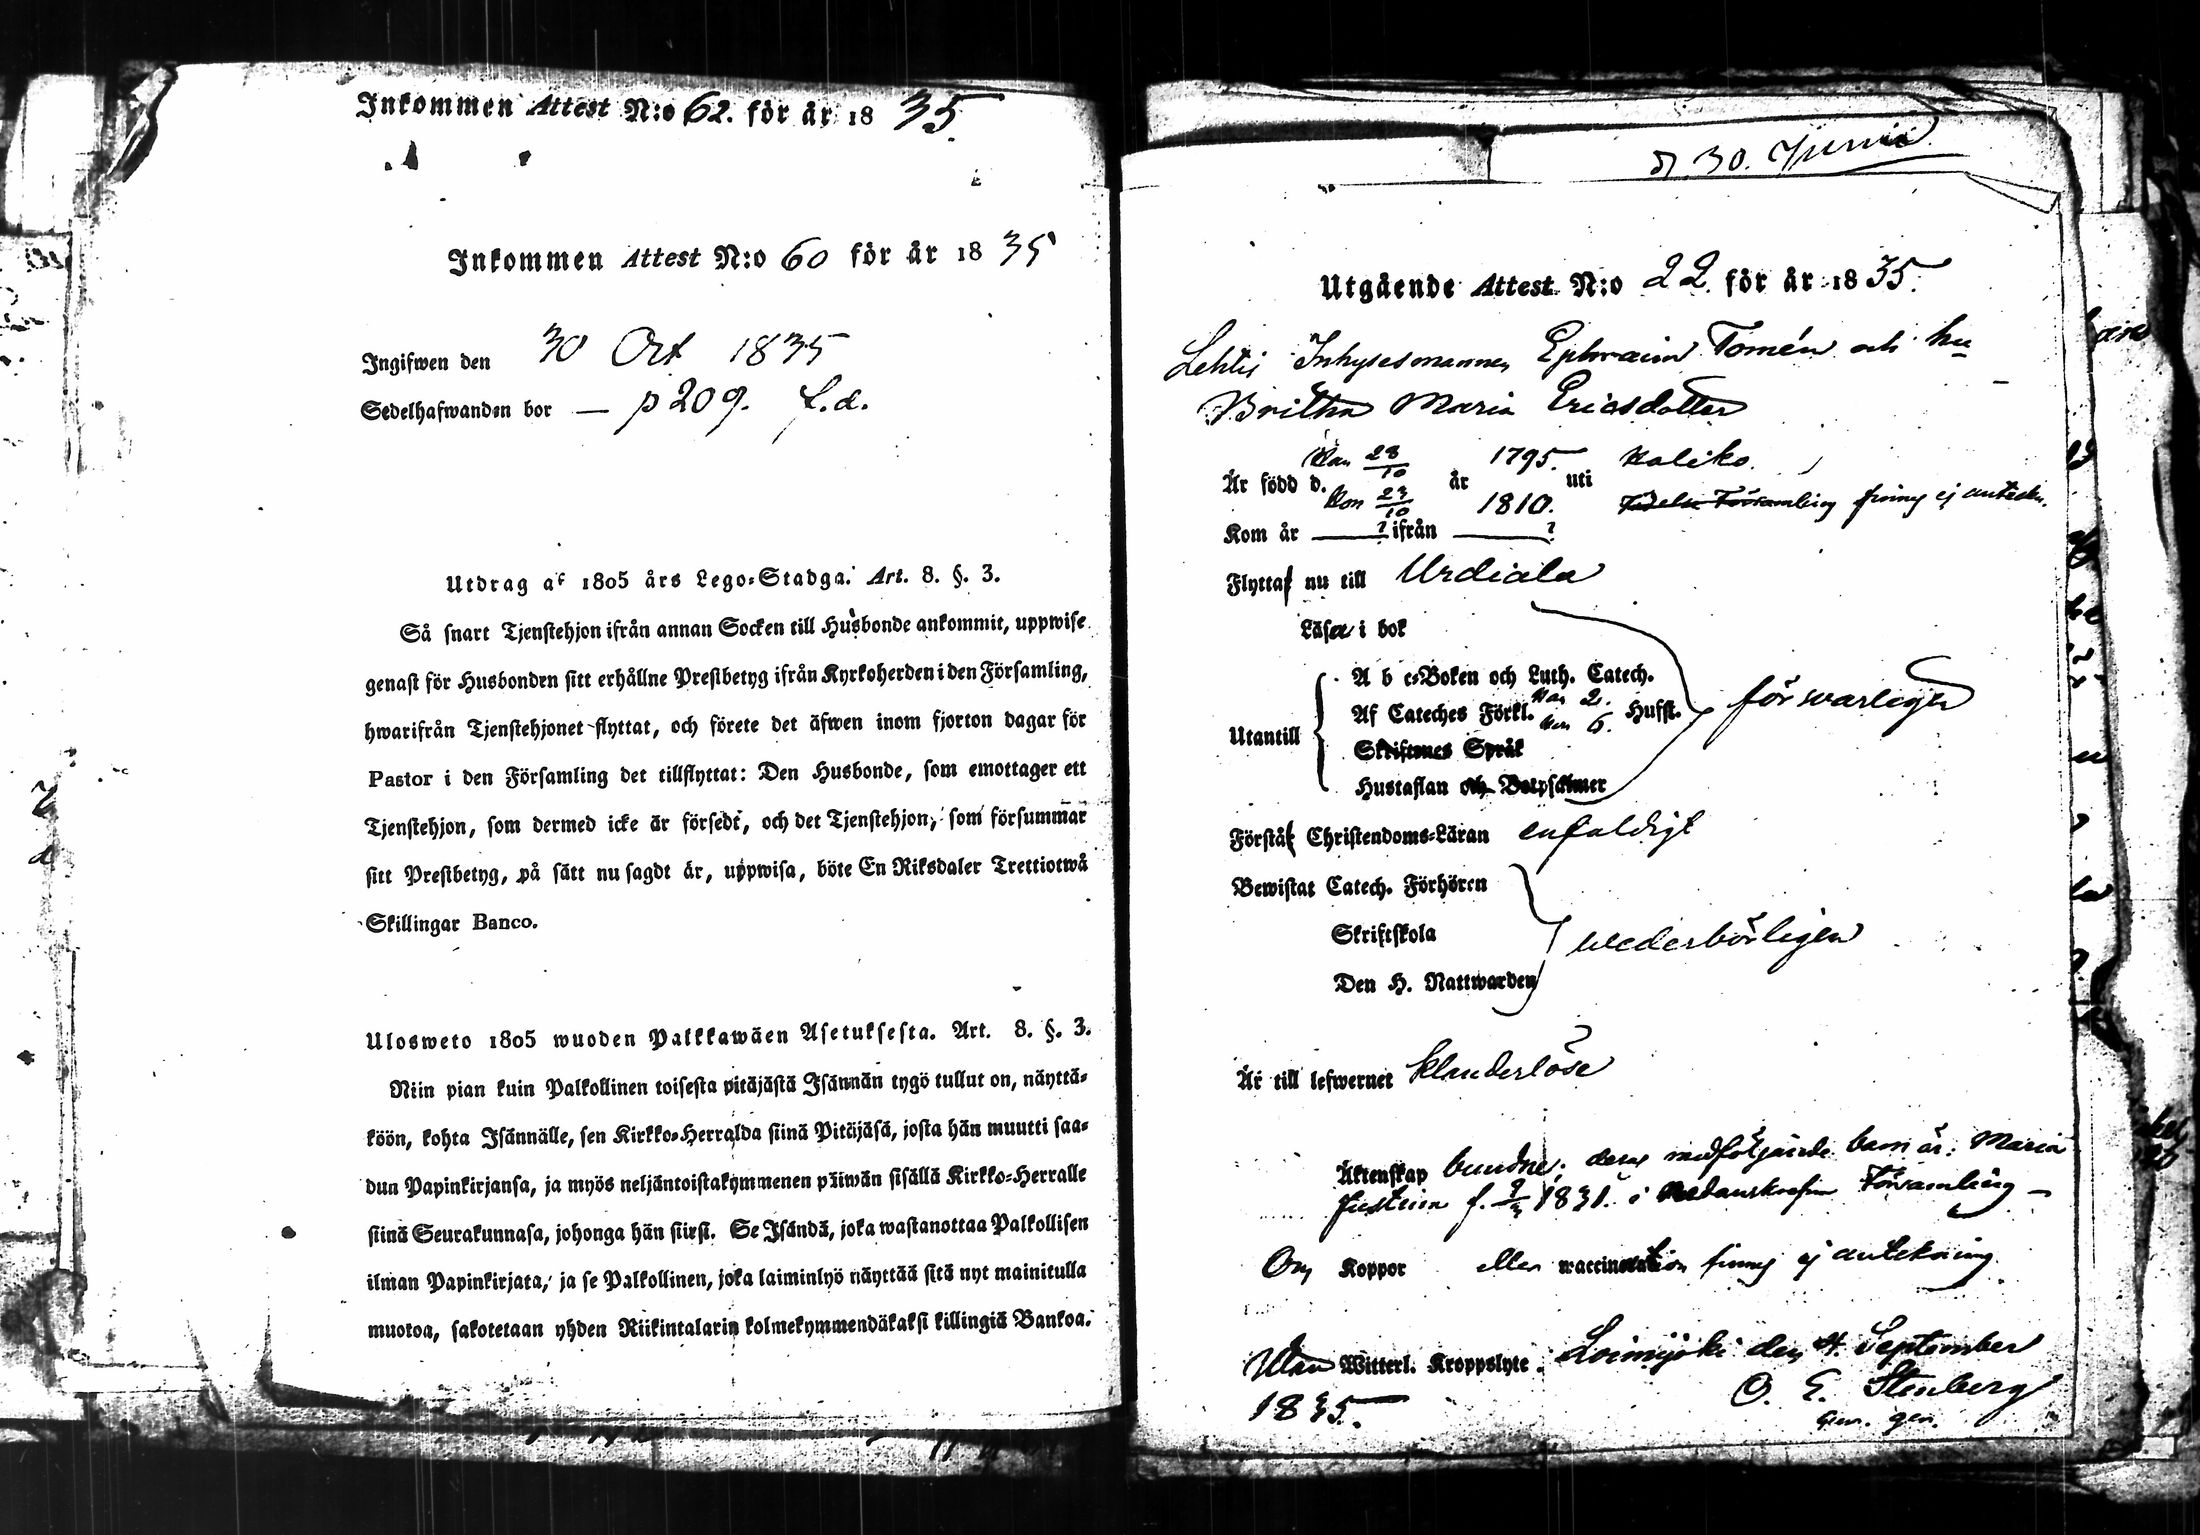 Inkommen Attest N:o 62. för år 1835
Inkommen Attest N:o 60 för år 1835
Ingifwen den 30 Oct 1835
Sedelhafwanden bor — p 209. f.d.
Utdrag af 1805 års Lego-Stadga. Art. 8. §. 3.
Så snart Tjenstehjon ifrån annan Socken till Husbonde ankommit, uppwise
genast för Husbonden sitt erhållne Prestbetyg ifrån Kyrkoherden i den Församling,
hwarifrån Tjenstehjonet flyttat, och förete det äfwen inom fjorton dagar för
Pastor i den Församling det tillflyttat: Den Husbonde, som emottager ett
Tjenstehjon, som dermed icke är försedt, och det Tjenstehjon, som försummar
sitt Prestbetyg, på sätt nu sagdt är, uppwisa, böte En Riksdaler Trettiotwå
Skillingar Banco.
Ulosweto 1805 wuoden Palkkawäen Asetuksesta. Art. 8. §. 3.
Niin pian kuin Palkollinen toisesta pitäjästä Isännän tygö tullut on, näyttä-
köön, kohta Isännälle, sen Kirkko-Herralda siinä Pitäjäsä, josta hän muutti saa-
dun Papinkirjansa, ja myös neljäntoistakymmenen päiwän sisällä Kirkko-Herralle
siinä Seurakunnasa, johonga hän siirsi. Se Isändä, joka wastanottaa Palkollisen
ilman Papinkirjata, ja se Palkollinen, joka laiminlyö näyttää sitä nyt mainitulla
muotoa, sakotetaan yhden Riikintalarin kolmekymmendäkaksi killingiä Bankoa.
d. 30. Junii
Utgående Attest N:o 22. för år 1835.
Lehtis Inhysesmannen Ephraim Tomén och hu
Britha Maria Ericsdotter
Man 28/10 1795. Kaliko
Är född d. år uti
Kon 23/10 1810. Födelse Församling finnes ej anteckn.
Kom år ? ifrån ?
Flytta nu till Urdiala
Läsa i bok
A b c-Boken och Luth. Catech.
Af Cateches Förkl. Man 2. Kon 6. Hufst. försvarligen
Utantill
Skriftenes Språk
Hustaflan och Botpsalmer
Förstå Christendoms-Läran enfaldigt
Bewistat Catech. Förhören
Skriftskola wederbörligen
Den H. Nattwarden
Är till lefwernet klanderlöse
Äktenskap bundne; deras medföljande barn är: Maria
Justina f. 1831. i Församling —
Om Koppor eller waccination finnes ej anteckning
Utan Witterl. Kroppslyte. Loimijoki den 4. September
1835. O. E. Stenberg